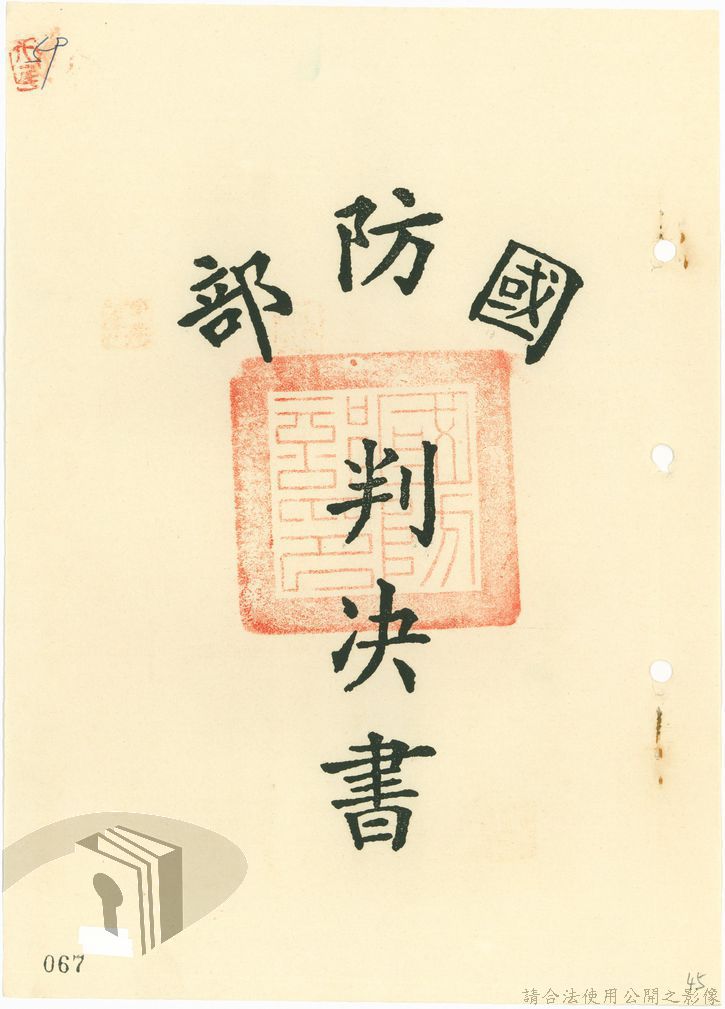 54
國防部
判決書
067
45
請合法使用公開之影像